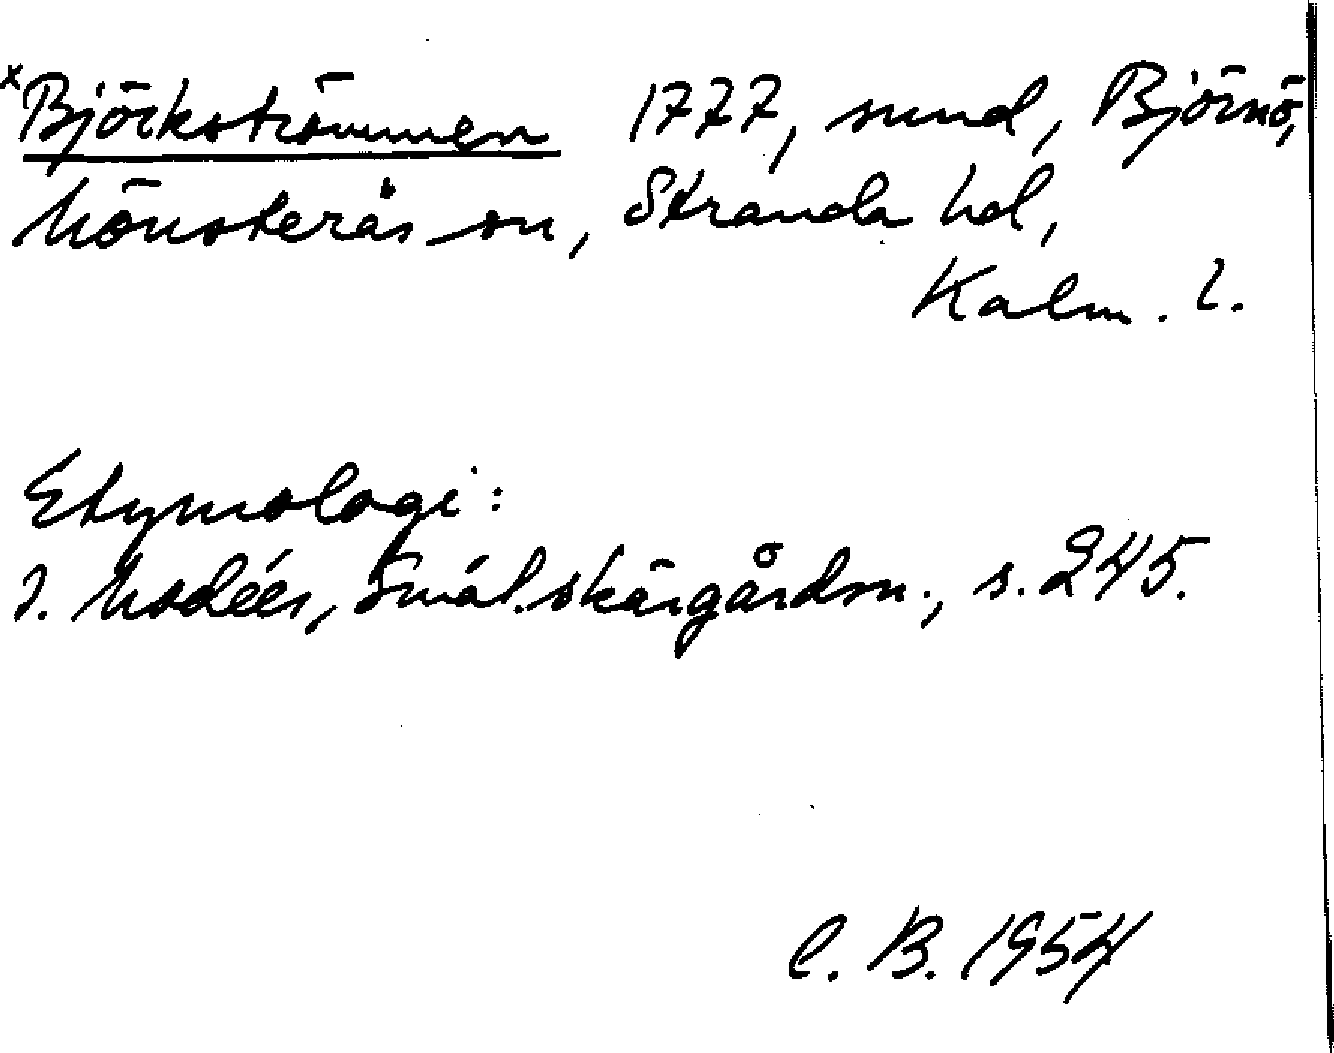 x Björkströmmen 1777, sund, Björnö,
Mönsterås sn, Stranda hd,
Kalm. l.
Etymologi:
I. Modéer, Smål. skärgårdsn., s. 245.
C. B. 1954